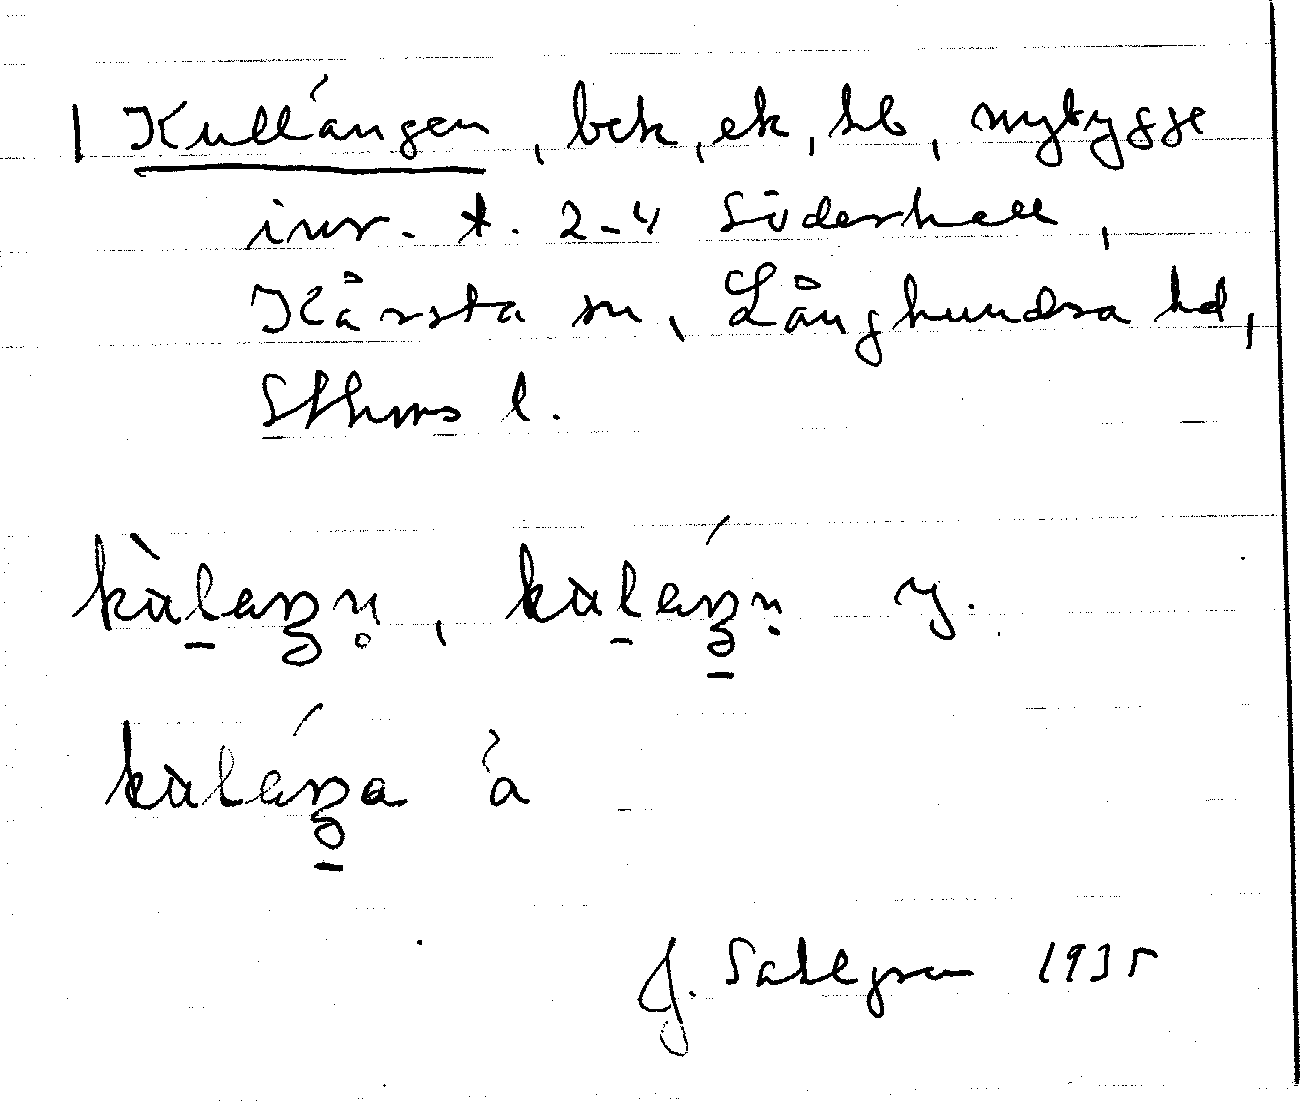 1 Kullängen, bek, ek, hb, nybygge
inr. t. 2-4 Söderhall,
Kårsta sn, Långhundra hd,
Sthms l.
kùlaŋn̥, kùláŋn̥ y.
kùláŋa ä
J. Sahlgren 1935